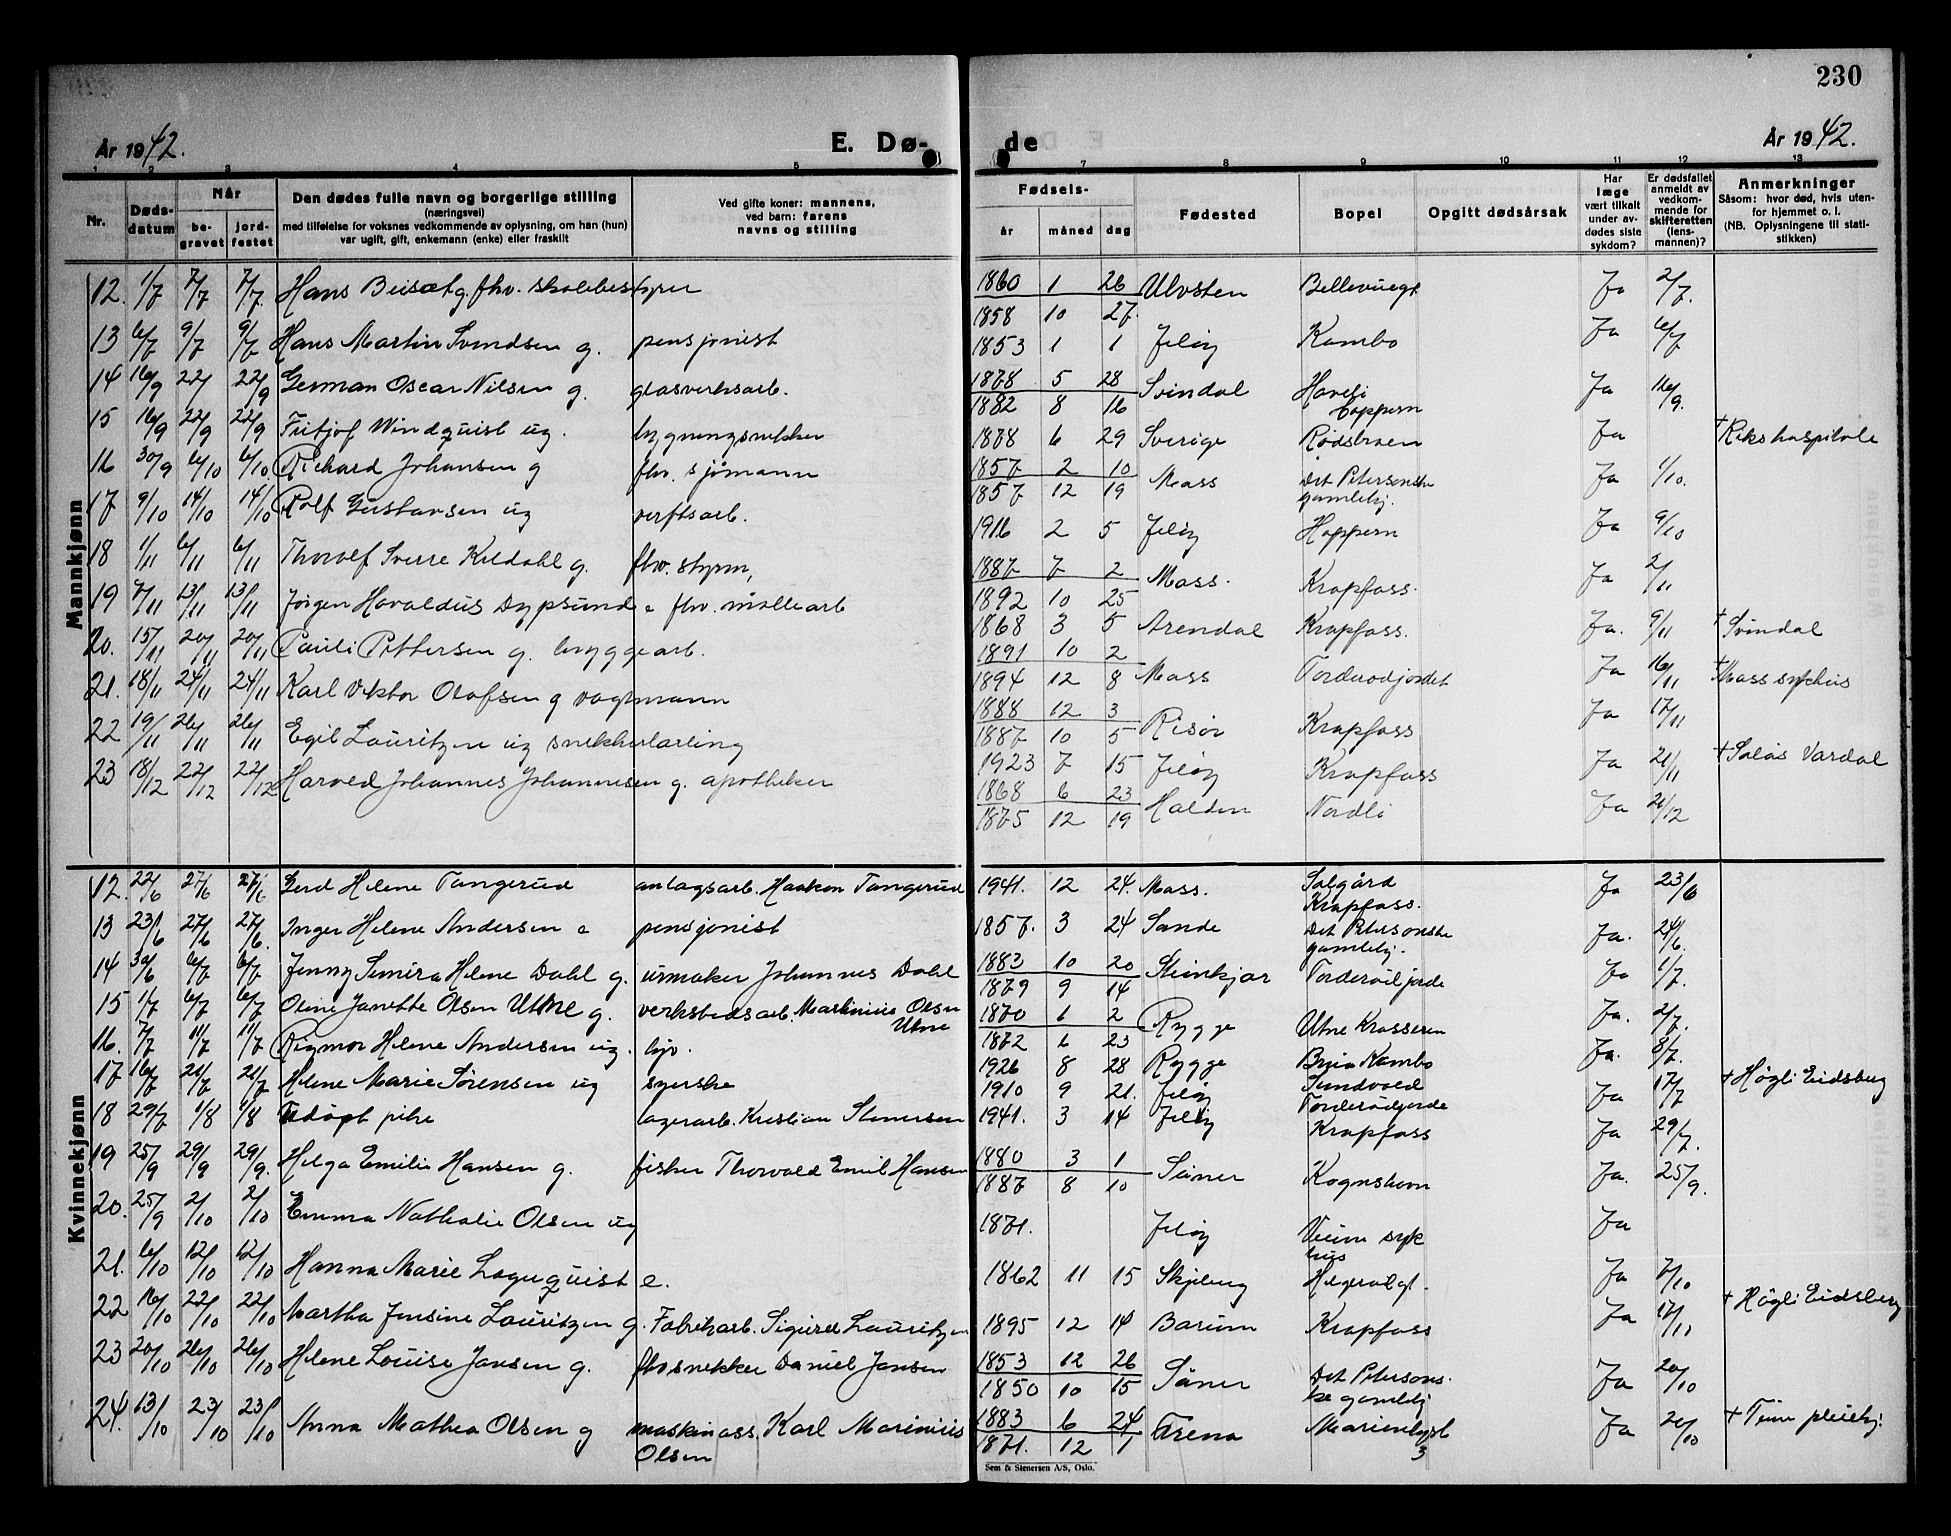 230
År 1942.
E. Dø-
de
År 1942.
1 2 3 4 5 7 8 9 10 11 12 13
Nr.
Døds-
datum
Når
be-
gravet
jord-
festet
Den dødes fulle navn og borgerlige stilling
(næringsvei)
med tilføielse for voksnes vedkommende av oplysning, om han (hun)
var ugift, gift, enkemann (enke) eller fraskilt
Ved gifte koner: mannens,
ved barn: farens
navns og stilling
Fødsels-
år måned dag
Fødested
Bopel
Opgitt dødsårsak
Har
læge
vært tilkalt
under av-
dødes siste
sykdom?
Er dødsfallet
anmeldt av
vedkom-
mende for
skifteretten
(lens-
mannen)?
Anmerkninger
Såsom: hvor død, hvis uten-
for hjemmet o. l.
(NB. Oplysningene til stati-
stikken)
Mannkjønn
12. 1/7 7/7 7/7 Hans Beisæt g. fhv. skolebestyrer 1860 1 26 Ulvsten Bellevuegt Ja 2/7.
1858 10 27.
13 6/7 9/7 9/7 Hans Martin Svendsen g. pensjonist 1853 1 1 Jeløy Kambo Ja 6/7
14 16/9 22/ 22/9 German Oscar Nilsen g. glasverksarb. 1878 5 28 Svindal Ja 16/9.
1882 8 16
15 16/9 22/9 22/9 Fritjof Windquist ug. bygningsnekker 1878 6 29 Sverige Rødsbraen Ja † Rikshospitale
16 30/9 6/10 6/10 Richard Johansen g fhv. sjømann 1857 2 10 Moss Det Petersonske Ja 1/10.
1857 12 19 gamlehj.
17 9/10 14/10 14/10 Rolf Gustavsen ug verftsarb. 1916 2 5 Jeløy Hoppern Ja 9/10
18 1/11 6/11 6/11 Thorolf Sverre Kildahl g. fhv. styrm, 1887 7 2 Moss. Krapfoss. Ja 2/11
1892 10 25
19 7/11 13/11 13/11 Jørgen Haraldus Dypsund e fhv. møllearb 1868 3 5 Arendal Krapfoss. Ja. 9/11 † Svindal
20. 15/11 20/11 20/11 Pauli Pettersen g. bryggearb. 1891 10 2 Moss Ja 16/11 † Moss sykehus
1894 12 8
21. 18/11 24/11 24/11 Karl Viktor Olafsen g vagtmann 1888 12 3 Risør Krapfoss Ja 17/11
1887 10 5
22 19/11 26/11 26/11 Egil Lauritzen ug snekkerlærling 1923 7 15 Jeløy Krapfoss Ja 21/11 † Solås Vardal
23 18/12 22/12 22/12 Harved Johannes Johannesen g. apotheker 1868 6 23 Halden Nordli Ja 21/12
1875 12 19
Kvinnekjønn
12. 22/6 27/6 27/6 Gerd Helene Tangerud anlagsarb. Haakon Tangerud 1941. 12 24. Moss. Solgård Ja 23/6
Krapfoss.
13 23/6 27/6 27/6. Inger Helene Andersen e pensjonist 1857. 3 24 Sande Det Petersonske Ja. 24/6.
gamlehj.
14 30/6 6/7 6/7 Jenny Semira Helene Dahl g. urmaker Johannes Dahl 1883 10 20 Steinkjær Ja 1/7.
1879 9 14
15 1/7 6/7 6/7 Oline Janette Olsen Utne g. verkstedsarb. Martinius Olsen 1870 1 2 Rygge Utne Krosseren Ja. 2/7.
Utne
1872 6 23
16. 7/7 11/7 11/7 Rigmor Helene Andersen ug. hjv. 1926 8 28 Rygge Kambo Ja. 8/7.
17 16/7 21/7 21/7 Helene Marie Sørensen ug syerske 1910 9 21. Jeløy Sundvold Ja 17/7 † Høgli Eidsberg
18 29/7 1/8 1/8 Udøpt pike lagerarb. Kristian Stenersen 1941. 3 14 Jeløy Krapfoss Ja 29/7.
19 25/9 29/9 29/9. Helga Emilie Hansen g. fisker Thorvald Emil Hansen 1880 3 1 Såner Kognshavn Ja. 25/9.
1887 8 10
20. 25/9 2/10 2/10 Emma Nathalie Olsen ug 1871. Jeløy Veum syk Ja
hus
21. 6/10 12/10 12/10 Hanna Marie Lagerquist e. 1862 11 15 Skjeberg Ja 7/10
22 16/10 22/10 22/10 Martha Jensine Lauritzen g. Fabrikarb. Sigurd Lauritzen 1895 12 14 Bærum Krapfoss Ja 17/10 † Høgli Eidsberg
23 20/10 26/10 26/10 Helene Louise Jansen g. fhv snekker Daniel Jansen 1853 12 26 Såner Det Petersons- Ja 20/10
1850 10 15 ke gamlehj
24. 13/10 23/10 23/10 Anna Mathea Olsen g maskinass. Karl Marinius 1883 6 24 Marienlyst Ja 20/10 † pleiehj.
Olsen 1871. 12 1 3
Sem & Stenersen A/S, Oslo.